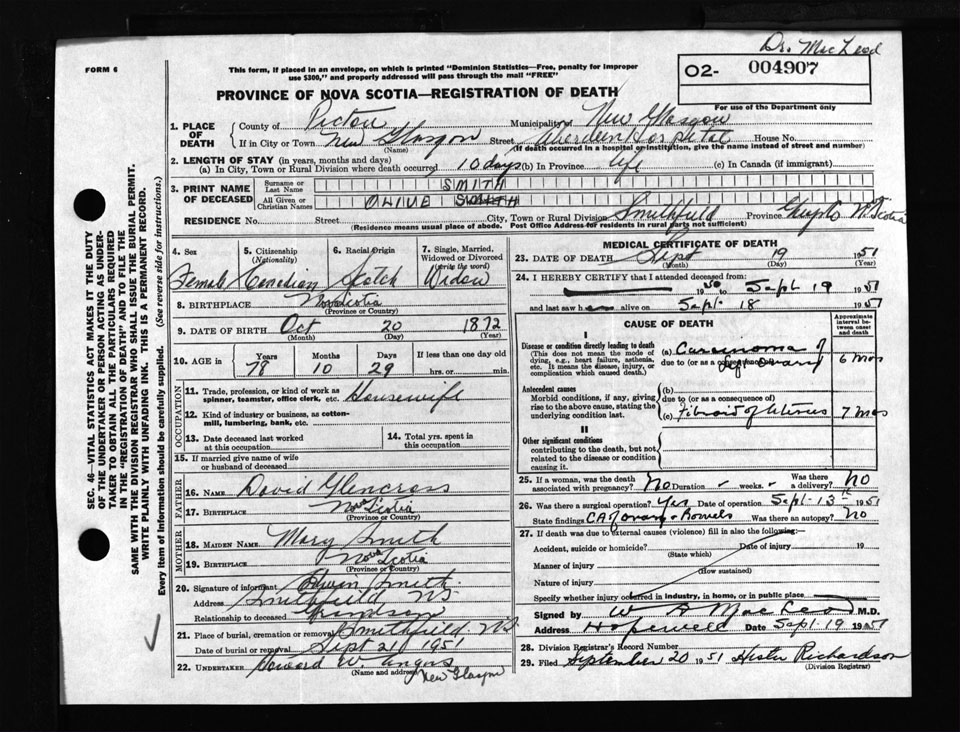 Dr. MacLeod
FORM 6
This form, if placed in an envelope, on which is printed "Dominion Statistics—Free, penalty for improper
use $300," and properly addressed will pass through the mail "FREE"
02- 004907
PROVINCE OF NOVA SCOTIA—REGISTRATION OF DEATH
For use of the Department only
1. PLACE OF DEATH
County of Pictou Municipality of New Glasgow
If in City or Town New Glasgow Street Aberdeen Hospital House No.
(Name) (If death occurred in a hospital or institution, give the name instead of street and number)
2. LENGTH OF STAY (in years, months and days)
(a) In City, Town or Rural Division where death occurred 10 days (b) In Province life (c) In Canada (if immigrant)
3. PRINT NAME OF DECEASED
Surname or Last Name SMITH
All Given or Christian Names OLIVE SMITH
RESIDENCE No. Street City, Town or Rural Division Smithfield Province Guys Co N. Scotia
(Residence means usual place of abode. Post Office Address for residents in rural parts not sufficient)
4. Sex
Female
5. Citizenship (Nationality)
Canadian
6. Racial Origin
Scotch
7. Single, Married, Widowed or Divorced (write the word)
Widow
8. BIRTHPLACE Nova Scotia
(Province or Country)
9. DATE OF BIRTH Oct 20 1872
(Month) (Day) (Year)
10. AGE in
Years Months Days If less than one day old
78 10 29 hrs. or min.
OCCUPATION
11. Trade, profession, or kind of work as spinner, teamster, office clerk, etc. Housewife
12. Kind of industry or business, as cotton-mill, lumbering, bank, etc.
13. Date deceased last worked at this occupation
14. Total yrs. spent in this occupation
15. If married give name of wife or husband of deceased
FATHER
16. NAME David Glencross
17. BIRTHPLACE Nov Scotia
(Province or Country)
MOTHER
18. MAIDEN NAME Mary Smith
19. BIRTHPLACE Nova Scotia
(Province or Country)
20. Signature of informant Edwin Smith
Address Smithfield NS
Relationship to deceased Grandson
21. Place of burial, cremation or removal Smithfield NS
Date of burial or removal Sept 21 1951
22. UNDERTAKER Howard W. Angus
(Name and address) New Glasgow
MEDICAL CERTIFICATE OF DEATH
23. DATE OF DEATH Sept 19 1951
(Month) (Day) (Year)
24. I HEREBY CERTIFY that I attended deceased from:
1950 to Sept 19 1951
and last saw h alive on Sept 18 1951
CAUSE OF DEATH
Approximate interval between onset and death
I
Disease or condition directly leading to death
(This does not mean the mode of dying, e.g., heart failure, asthenia, etc. It means the disease, injury, or complication which caused death.)
(a) Carcinoma of left Ovary 6 mos
due to (or as a consequence of)
Antecedent causes
Morbid conditions, if any, giving rise to the above cause, stating the underlying condition last.
(b)
due to (or as a consequence of)
(c) Fibroid of Uterus 7 mos
II
Other significant conditions
contributing to the death, but not related to the disease or condition causing it.
25. If a woman, was the death associated with pregnancy? No Duration - weeks. - Was there a delivery? No
26. Was there a surgical operation? Yes Date of operation Sept-13th 1951
State findings CA of ovary + Bowels Was there an autopsy? No
27. If death was due to external causes (violence) fill in also the following:—
Accident, suicide or homicide? Date of injury 19
(State which)
Manner of injury
(How sustained)
Nature of injury
Specify whether injury occurred in industry, in home, or in public place
Signed by W A MacLeod M.D.
Address Hopewell Date Sept-19 1951
28. Division Registrar's Record Number
29. Filed September 20 1951 Hester Richardson
(Division Registrar)
SEC. 46—VITAL STATISTICS ACT MAKES IT THE DUTY
OF THE UNDERTAKER OR PERSON ACTING AS UNDER-
TAKER TO OBTAIN ALL THE PARTICULARS REQUIRED
IN THE "REGISTRATION OF DEATH" AND TO FILE THE
SAME WITH THE DIVISION REGISTRAR WHO SHALL ISSUE THE BURIAL PERMIT.
WRITE PLAINLY WITH UNFADING INK. THIS IS A PERMANENT RECORD.
Every item of Information should be carefully supplied. (See reverse side for instructions.)